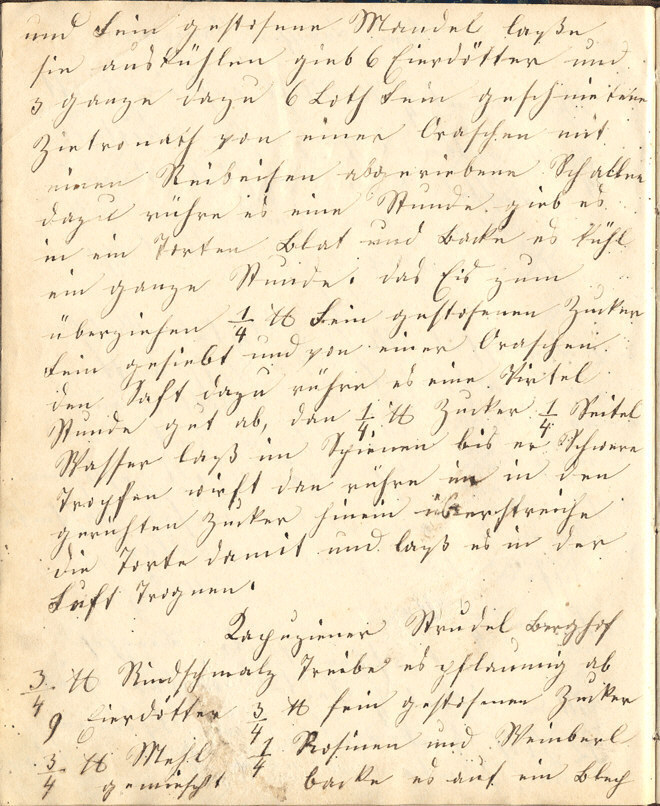 und fein gestosene Mandel laße
sie auskühlen gieb 6 Eierdötter und
3 ganze dazu 6 Loth fein geschnietene
Zietronath von einer Oraschen mit
einen Reibeisen abgeriebene Schallen
dazu rühre es eine Stunde gieb es
in ein Torten Blat und backe es kühl
ein ganze Stunde. das Eis zum
überziehen 1/4 ℔ fein gestosenen Zucker
fein gesiebt und von einer Oraschen
den Saft dazu rühre es eine Virtel
Stunde gut ab, dan 1/4 ℔ Zucker 1/4 Seitel
Wasser laß im Spienen bis er Schwere
Tropfen wirft dan rühre im in den
gerichten Zucker hinein überstreiche
die Torte damit und laß es in der
Luft Trognen.
Kapuziener Strudel Berghof
3/4 ℔ Rindschmalz Treibe es pflaumig ab
9 Eierdötter 3/4 ℔ fein gestosenen Zucker
3/4 ℔ Mehl 1/4 Rosinen und Weinberl
gemischt backe es auf ein Blech